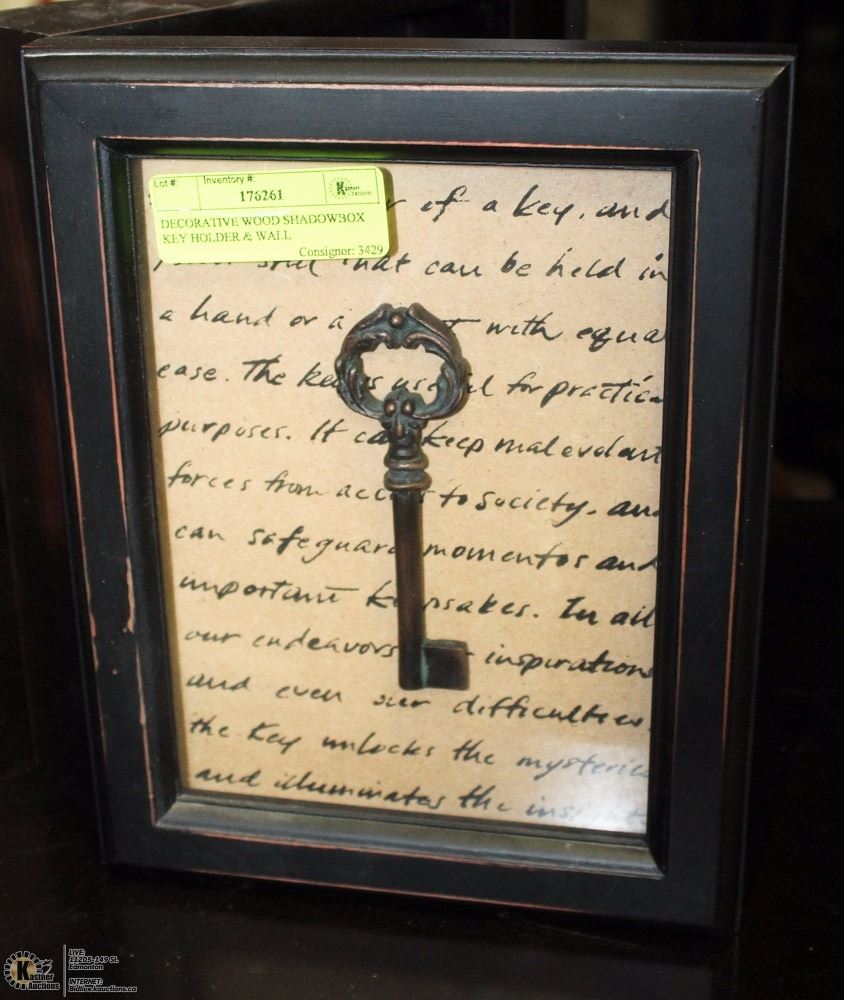 Lot #: Inventory #:
176261
Kastner Auctions
DECORATIVE WOOD SHADOWBOX
KEY HOLDER & WALL
Consignor: 3429
of a key, and
that can be held in
a hand or a with equa
ease. The key is useful for practica
purposes. It can keep malevolant
forces from access to society, and
can safeguard momentos and
important keepsakes. In all
our endeavors inspirations
and even our difficulties,
the Key unlocks the mysteries
and illuminates the insight
Kastner
Auctions
LIVE:
11205-149 St.
Edmonton
INTERNET:
Bidlive.kauctions.ca